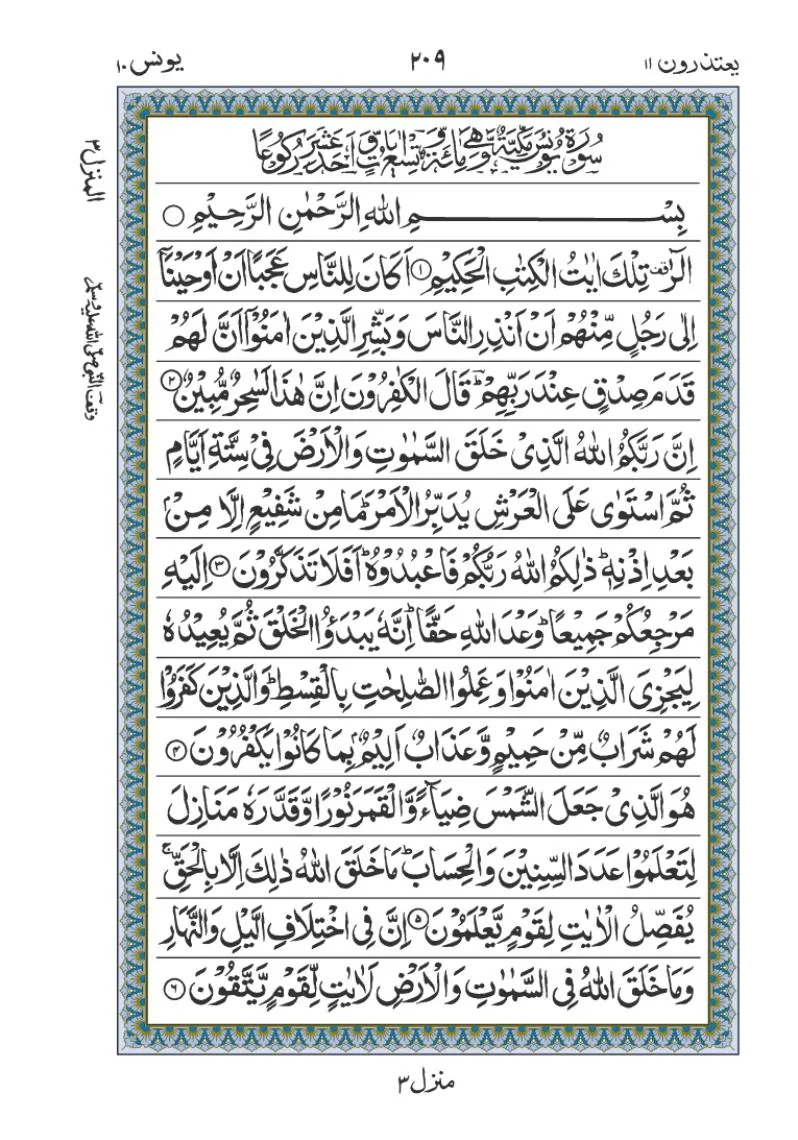 یعتذرون ۱۱
۲۰۹
یونس ۱۰
المنزل ۳
وقف النبی صلی الله علیه وسلم
سُوْرَةُ يُوْنُسَ مَكِّيَّةٌ وَّهِيَ مِائَةٌ وَّتِسْعُ اٰيَاتٍ وَّاَحَدَ عَشَرَ رُكُوْعًا
بِسْمِ اللهِ الرَّحْمٰنِ الرَّحِيْمِ ○
الٓرٰ ۚ تِلْكَ اٰيٰتُ الْكِتٰبِ الْحَكِيْمِ ۝۱ اَكَانَ لِلنَّاسِ عَجَبًا اَنْ اَوْحَيْنَاۤ
اِلٰى رَجُلٍ مِّنْهُمْ اَنْ اَنْذِرِ النَّاسَ وَبَشِّرِ الَّذِيْنَ اٰمَنُوْۤا اَنَّ لَهُمْ
قَدَمَ صِدْقٍ عِنْدَ رَبِّهِمْ ؔؕ قَالَ الْكٰفِرُوْنَ اِنَّ هٰذَا لَسٰحِرٌ مُّبِيْنٌ ۝۲
اِنَّ رَبَّكُمُ اللهُ الَّذِيْ خَلَقَ السَّمٰوٰتِ وَالْاَرْضَ فِيْ سِتَّةِ اَيَّامٍ
ثُمَّ اسْتَوٰى عَلَى الْعَرْشِ يُدَبِّرُ الْاَمْرَ ؕ مَا مِنْ شَفِيْعٍ اِلَّا مِنْۢ
بَعْدِ اِذْنِهٖ ؕ ذٰلِكُمُ اللهُ رَبُّكُمْ فَاعْبُدُوْهُ ؕ اَفَلَا تَذَكَّرُوْنَ ۝۳ اِلَيْهِ
مَرْجِعُكُمْ جَمِيْعًا ؕ وَعْدَ اللهِ حَقًّا ؕ اِنَّهٗ يَبْدَؤُا الْخَلْقَ ثُمَّ يُعِيْدُهٗ
لِيَجْزِيَ الَّذِيْنَ اٰمَنُوْا وَعَمِلُوا الصّٰلِحٰتِ بِالْقِسْطِ ؕ وَالَّذِيْنَ كَفَرُوْا
لَهُمْ شَرَابٌ مِّنْ حَمِيْمٍ وَّعَذَابٌ اَلِيْمٌۢ بِمَا كَانُوْا يَكْفُرُوْنَ ۝۴
هُوَ الَّذِيْ جَعَلَ الشَّمْسَ ضِيَآءً وَّالْقَمَرَ نُوْرًا وَّقَدَّرَهٗ مَنَازِلَ
لِتَعْلَمُوْا عَدَدَ السِّنِيْنَ وَالْحِسَابَ ؕ مَا خَلَقَ اللهُ ذٰلِكَ اِلَّا بِالْحَقِّ ۚ
يُفَصِّلُ الْاٰيٰتِ لِقَوْمٍ يَّعْلَمُوْنَ ۝۵ اِنَّ فِي اخْتِلَافِ الَّيْلِ وَالنَّهَارِ
وَمَا خَلَقَ اللهُ فِي السَّمٰوٰتِ وَالْاَرْضِ لَاٰيٰتٍ لِّقَوْمٍ يَّتَّقُوْنَ ۝۶
منزل ۳